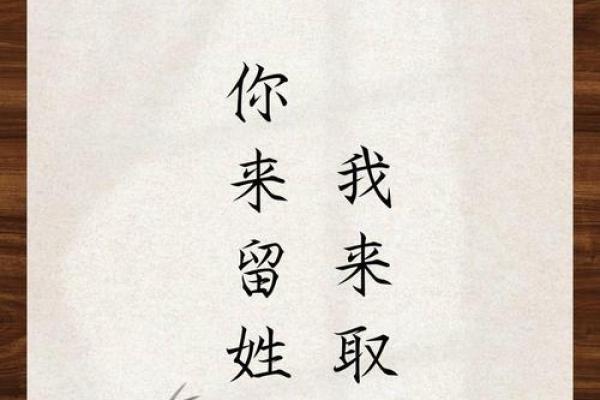 你来留姓
我来取